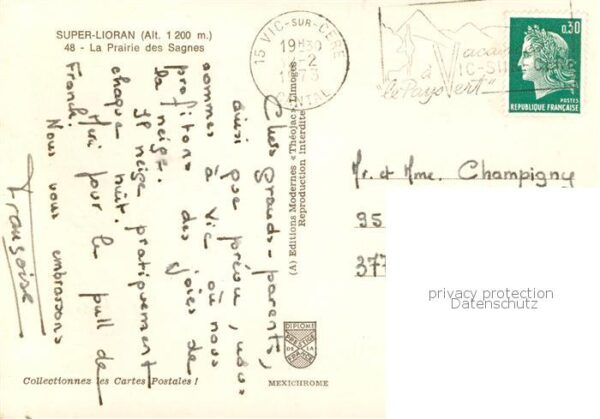 SUPER-LIORAN (Alt. 1 200 m.)
48 - La Prairie des Sagnes
15 VIC-SUR-CERE
19H30
-2
CANTAL
Vacances
à VIC-SUR-CERE
"le Pays Vert"
0,30
POSTES
REPUBLIQUE FRANÇAISE
Chers grands-parents,
ainsi que prévu, nous
sommes à Vic où nous
profitons des joies de
la neige.
Il neige pratiquement
chaque nuit.
Merci pour le pull de
Franck.
Nous vous embrassons
Françoise
(A) Editions Modernes « Théojac » Limoges
Reproduction Interdite
Mr. et Mme. Champigny
95
377
privacy protection
Datenschutz
DIPLOME
PRESTIGE
DE LA
FRANCE
MEXICHROME
Collectionnez les Cartes Postales !